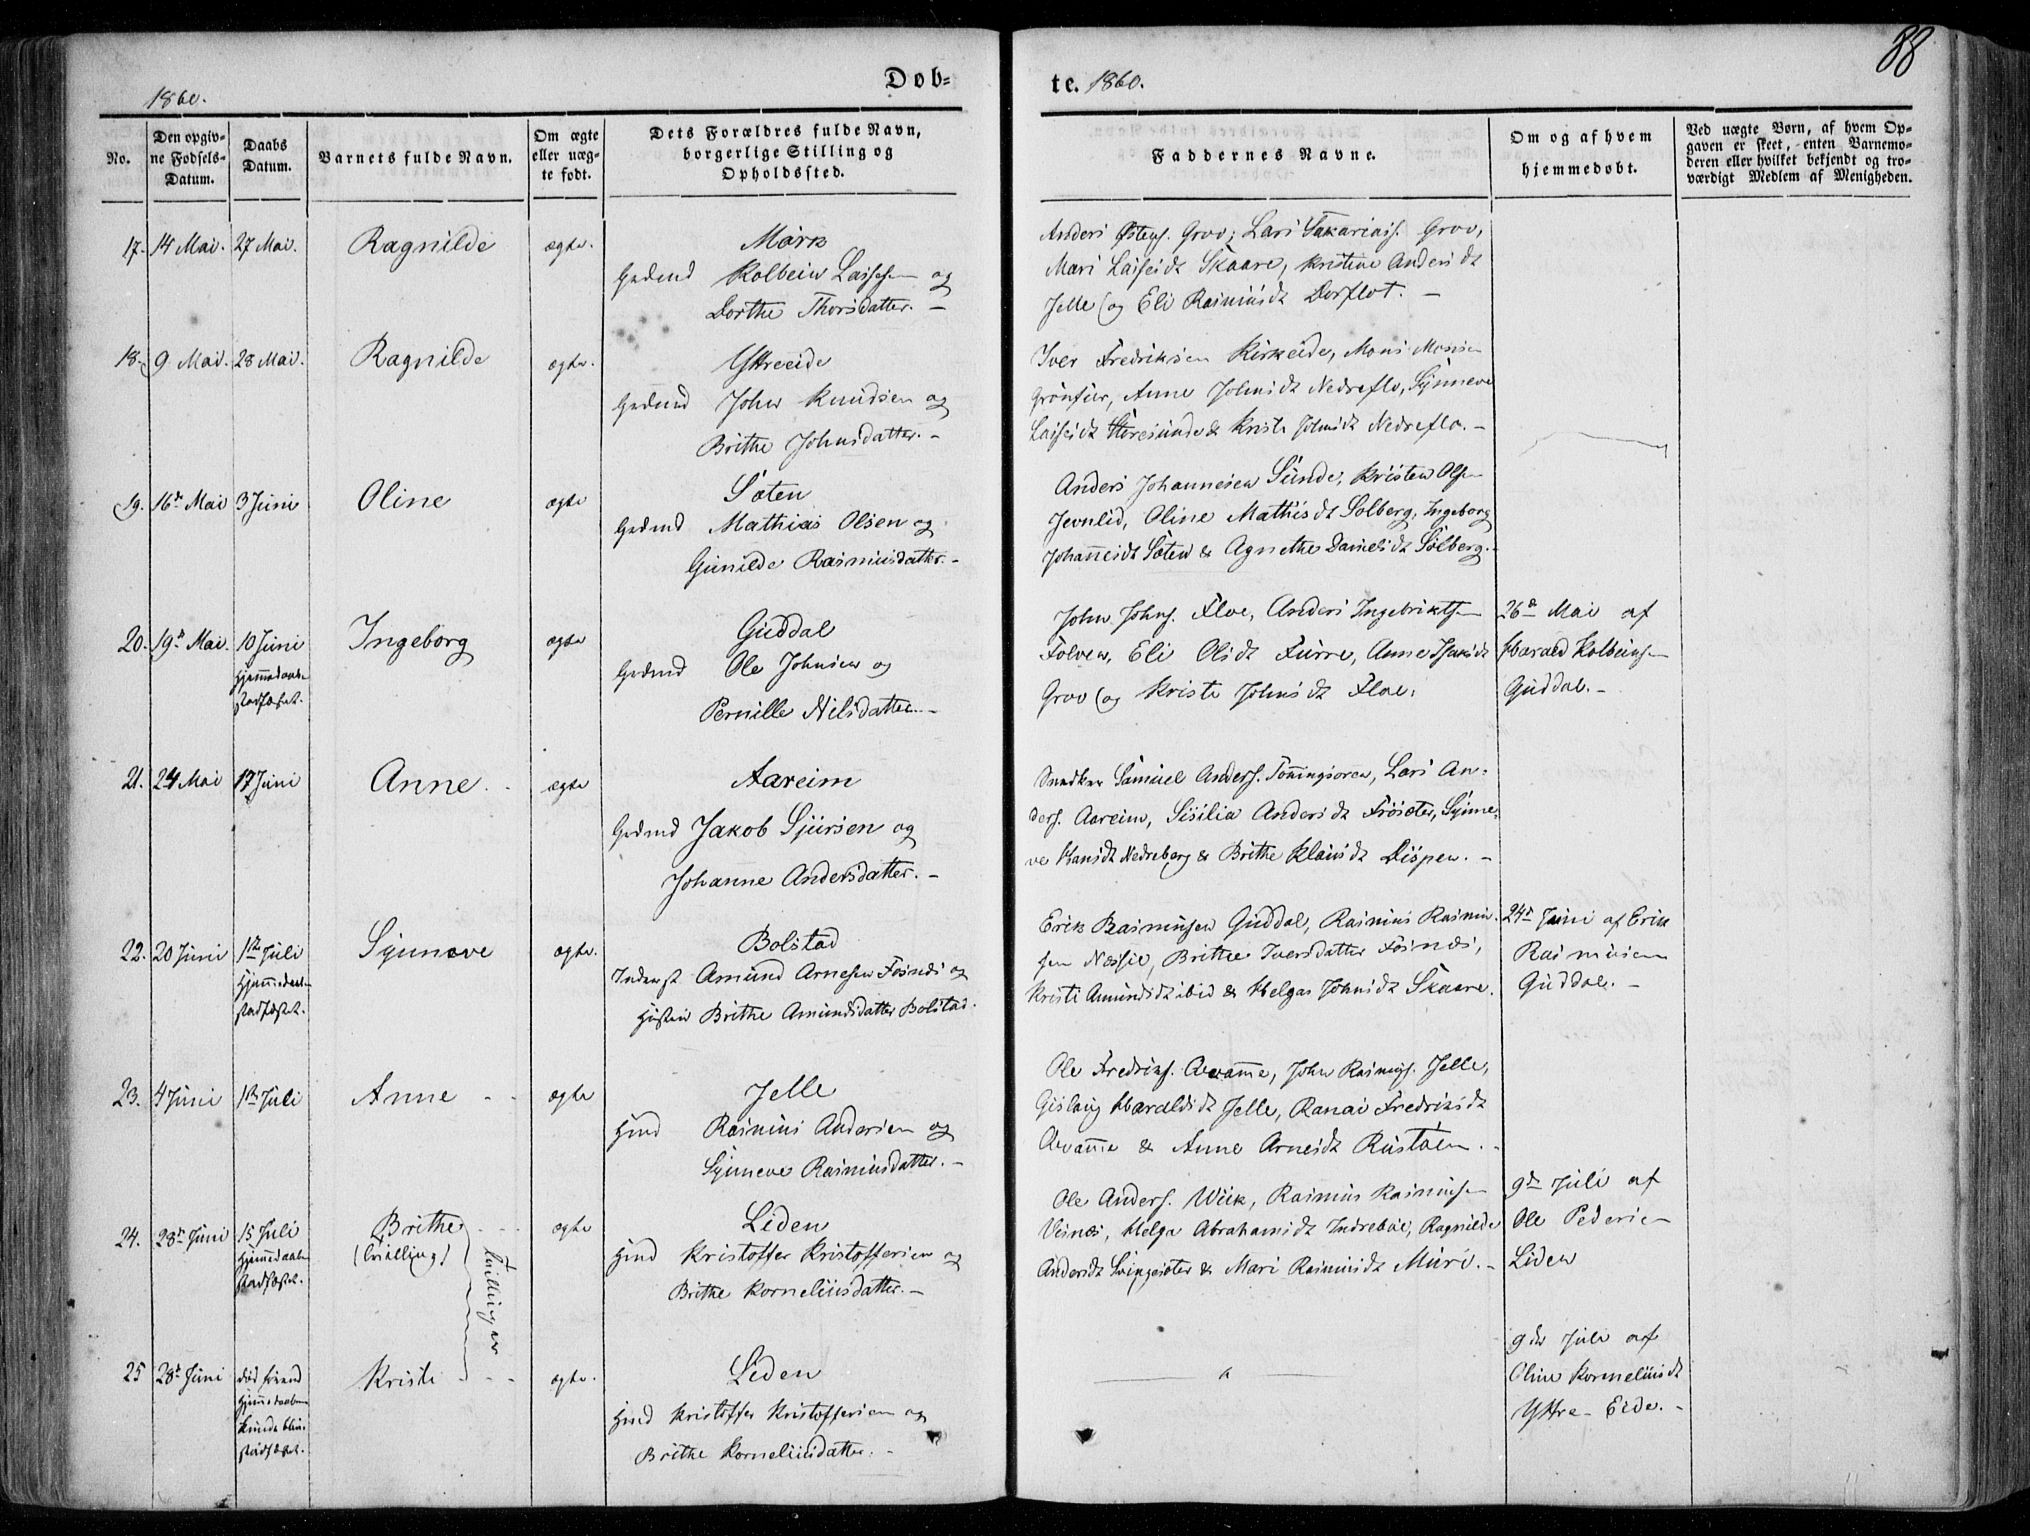 88
1860. Døb-
te. 1860.
No.
Den opgiv-
ne Fødsels-
Datum.
Daabs
Datum.
Barnets fulde Navn.
Om ægte
eller uæg-
te født.
Dets Forældres fulde Navn,
borgerlige Stilling og
Opholdssted.
Faddernes Navne.
Om og af hvem
hjemmedøbt.
Ved uægte Børn, af hvem Op-
gaven er skeet, enten Barnemo-
deren eller hvilket bekjendt og tro-
værdigt Medlem af Menigheden.
17. 14 Mai. 27 Mai. Ragnilde ægte.
Mørk
Gdmd Kolbein Lasses. og
Dorthe Thorsdatter. -
Anders Østens. Grov, Lars Sakarias. Grov,
Mari Lassesdt Skaare, Kristine Andersdt
Jelle og Eli Rasmusdt Dorflot. -
18. 9 Mai. 28 Mai. Ragnilde ægte.
Yttreeide
Gdmd John Knudsen og
Brithe Johnsdatter. -
Iver Fredriksen Kirkeide, Mons Monsen
Grønfur, Anne Johnsdt Nedreflo, Synneve
Lassesdt & Kristi Johnsdt Nedreflo. -
19. 16de Mai 3 Juni Oline ægte
Sæten
Gdmd Mathias Olsen og
Gunilde Rasmusdatter. -
Anders Johannesen Sunde, Kristen Olsen
Jevnlid, Oline Mathisdt Solberg, Ingeborg
Johannesdt Sæten & Agnethe Danielsdt Solberg. -
20. 19de Mai. 10 Juni Ingeborg ægte
Hjemmedaaben
stadfæstet.
Guddal
Gdmd Ole Johnsen og
Pernille Nilsdatter. -
John Johns. Floe, Anders Ingebrikts.
Folven, Eli Olsdt Furre, Anne Isaksdt
Grov og Kristi Johnsdt Floe.
26de Mai af
Harald Kolbeins.
Guddal. -
21. 24 Mai 17 Juni Anne ægte
Aareim
Gdmd Jakob Sjursen og
Johanne Andersdatter. -
Snedker Samuel Anders. Tonningsøren, Lars An-
ders. Aareim, Sisilia Andersdt Frøisæter, Synne-
ve Hansdt Nedreberg & Brithe Klausdt Dispen. -
22. 20 Juni 1ste Juli Synneve ægte.
Hjemmedaaben
stadfæstet.
Bolstad
Inderst Amund Arnesen Fosnæs og
Hustru Brithe Amundsdatter Bolstad.
Erik Rasmusen Guddal, Rasmus Rasmu-
sen Nessie, Brithe Iversdatter Fosnæs,
Kristi Amundsdt ibid & Helga Johnsdt Skaare.
24de Juni af Erik
Rasmusen
Guddal. -
23. 4 Juni 1ste Juli Anne ægte
Jelle
Hmd Rasmus Andersen og
Synneve Rasmusdatter. -
Ole Fredriks. Qvamme, John Rasmus. Jelle,
Gislaug Haraldsdt Jelle, Ranai Fredriksdt
Qvamme & Anne Arnesdt Rustøen.
24. 28de Juni 15 Juli Brithe ægte
(tvilling)
Hjemmedaaben
stadfæstet.
tvillinger
Liden
Hmd Kristoffer Kristoffersen og
Brithe Korneliusdatter. -
Ole Anders. Wiik, Rasmus Rasmusen
Visnæs, Helga Abrahamsdt Indrebøe, Ragnilde
Andersdt & Mari Rasmusdt Muri. -
9de Juli af
Ole Pedersen
Liden
25 28de Juni død forend
Hjemmedaaben
kunde blive
stadfæstet.
Kristi ægte.
Liden
Hmd Kristoffer Kristoffersen og
Brithe Korneliusdatter. -
9de Juli af
Oline Korneliusdt
Yttre-Eide. -